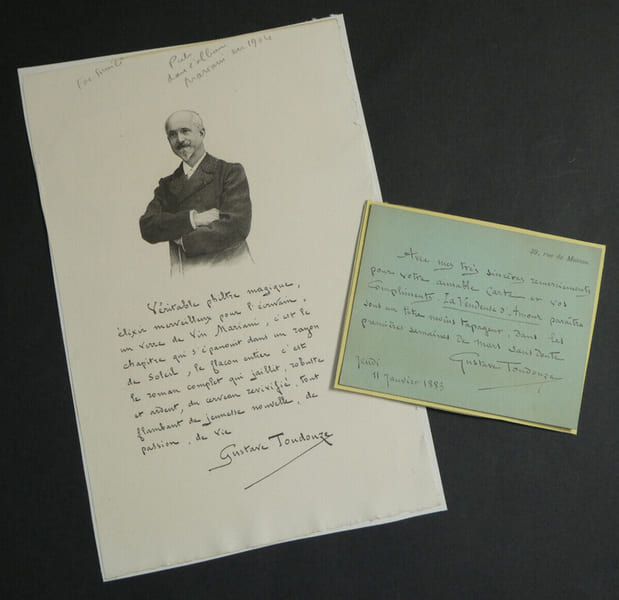 Fac similé
Pub
dans album
Mariani en 1904
Véritable philtre magique,
élixir merveilleux pour l'écrivain,
un verre de Vin Mariani, c'est le
chapitre qui s'épanouit dans un rayon
de soleil, le flacon entier c'est
le roman complet qui jaillit, robuste
et ardent, du cerveau revivifié, tout
flambant de jeunesse nouvelle, de
passion, de vie
Gustave Toudouze
Avec mes très sincères remerciements
pour votre aimable carte et vos
Compliments. La Vendeuse d'Amour paraîtra
sous un titre moins tapageur, dans les
premières semaines de mars sans doute
Gustave Toudouze
Jeudi
11 Janvier 1883